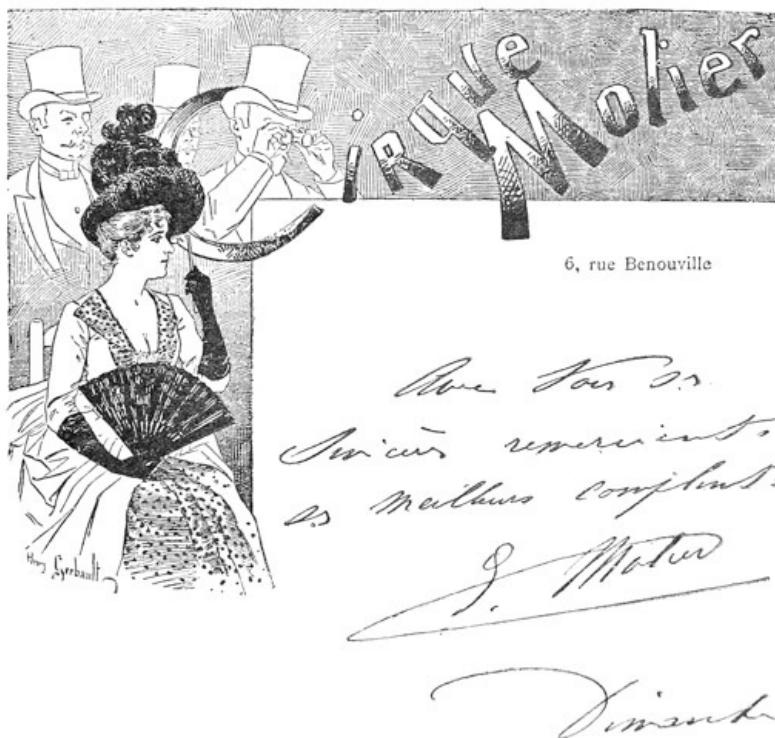 Cirque Molier
6, rue Benouville
Avec tous ses
sincères remerciements
ses meilleurs compliments
E. Molier
Dimanche
Henry Gerbault